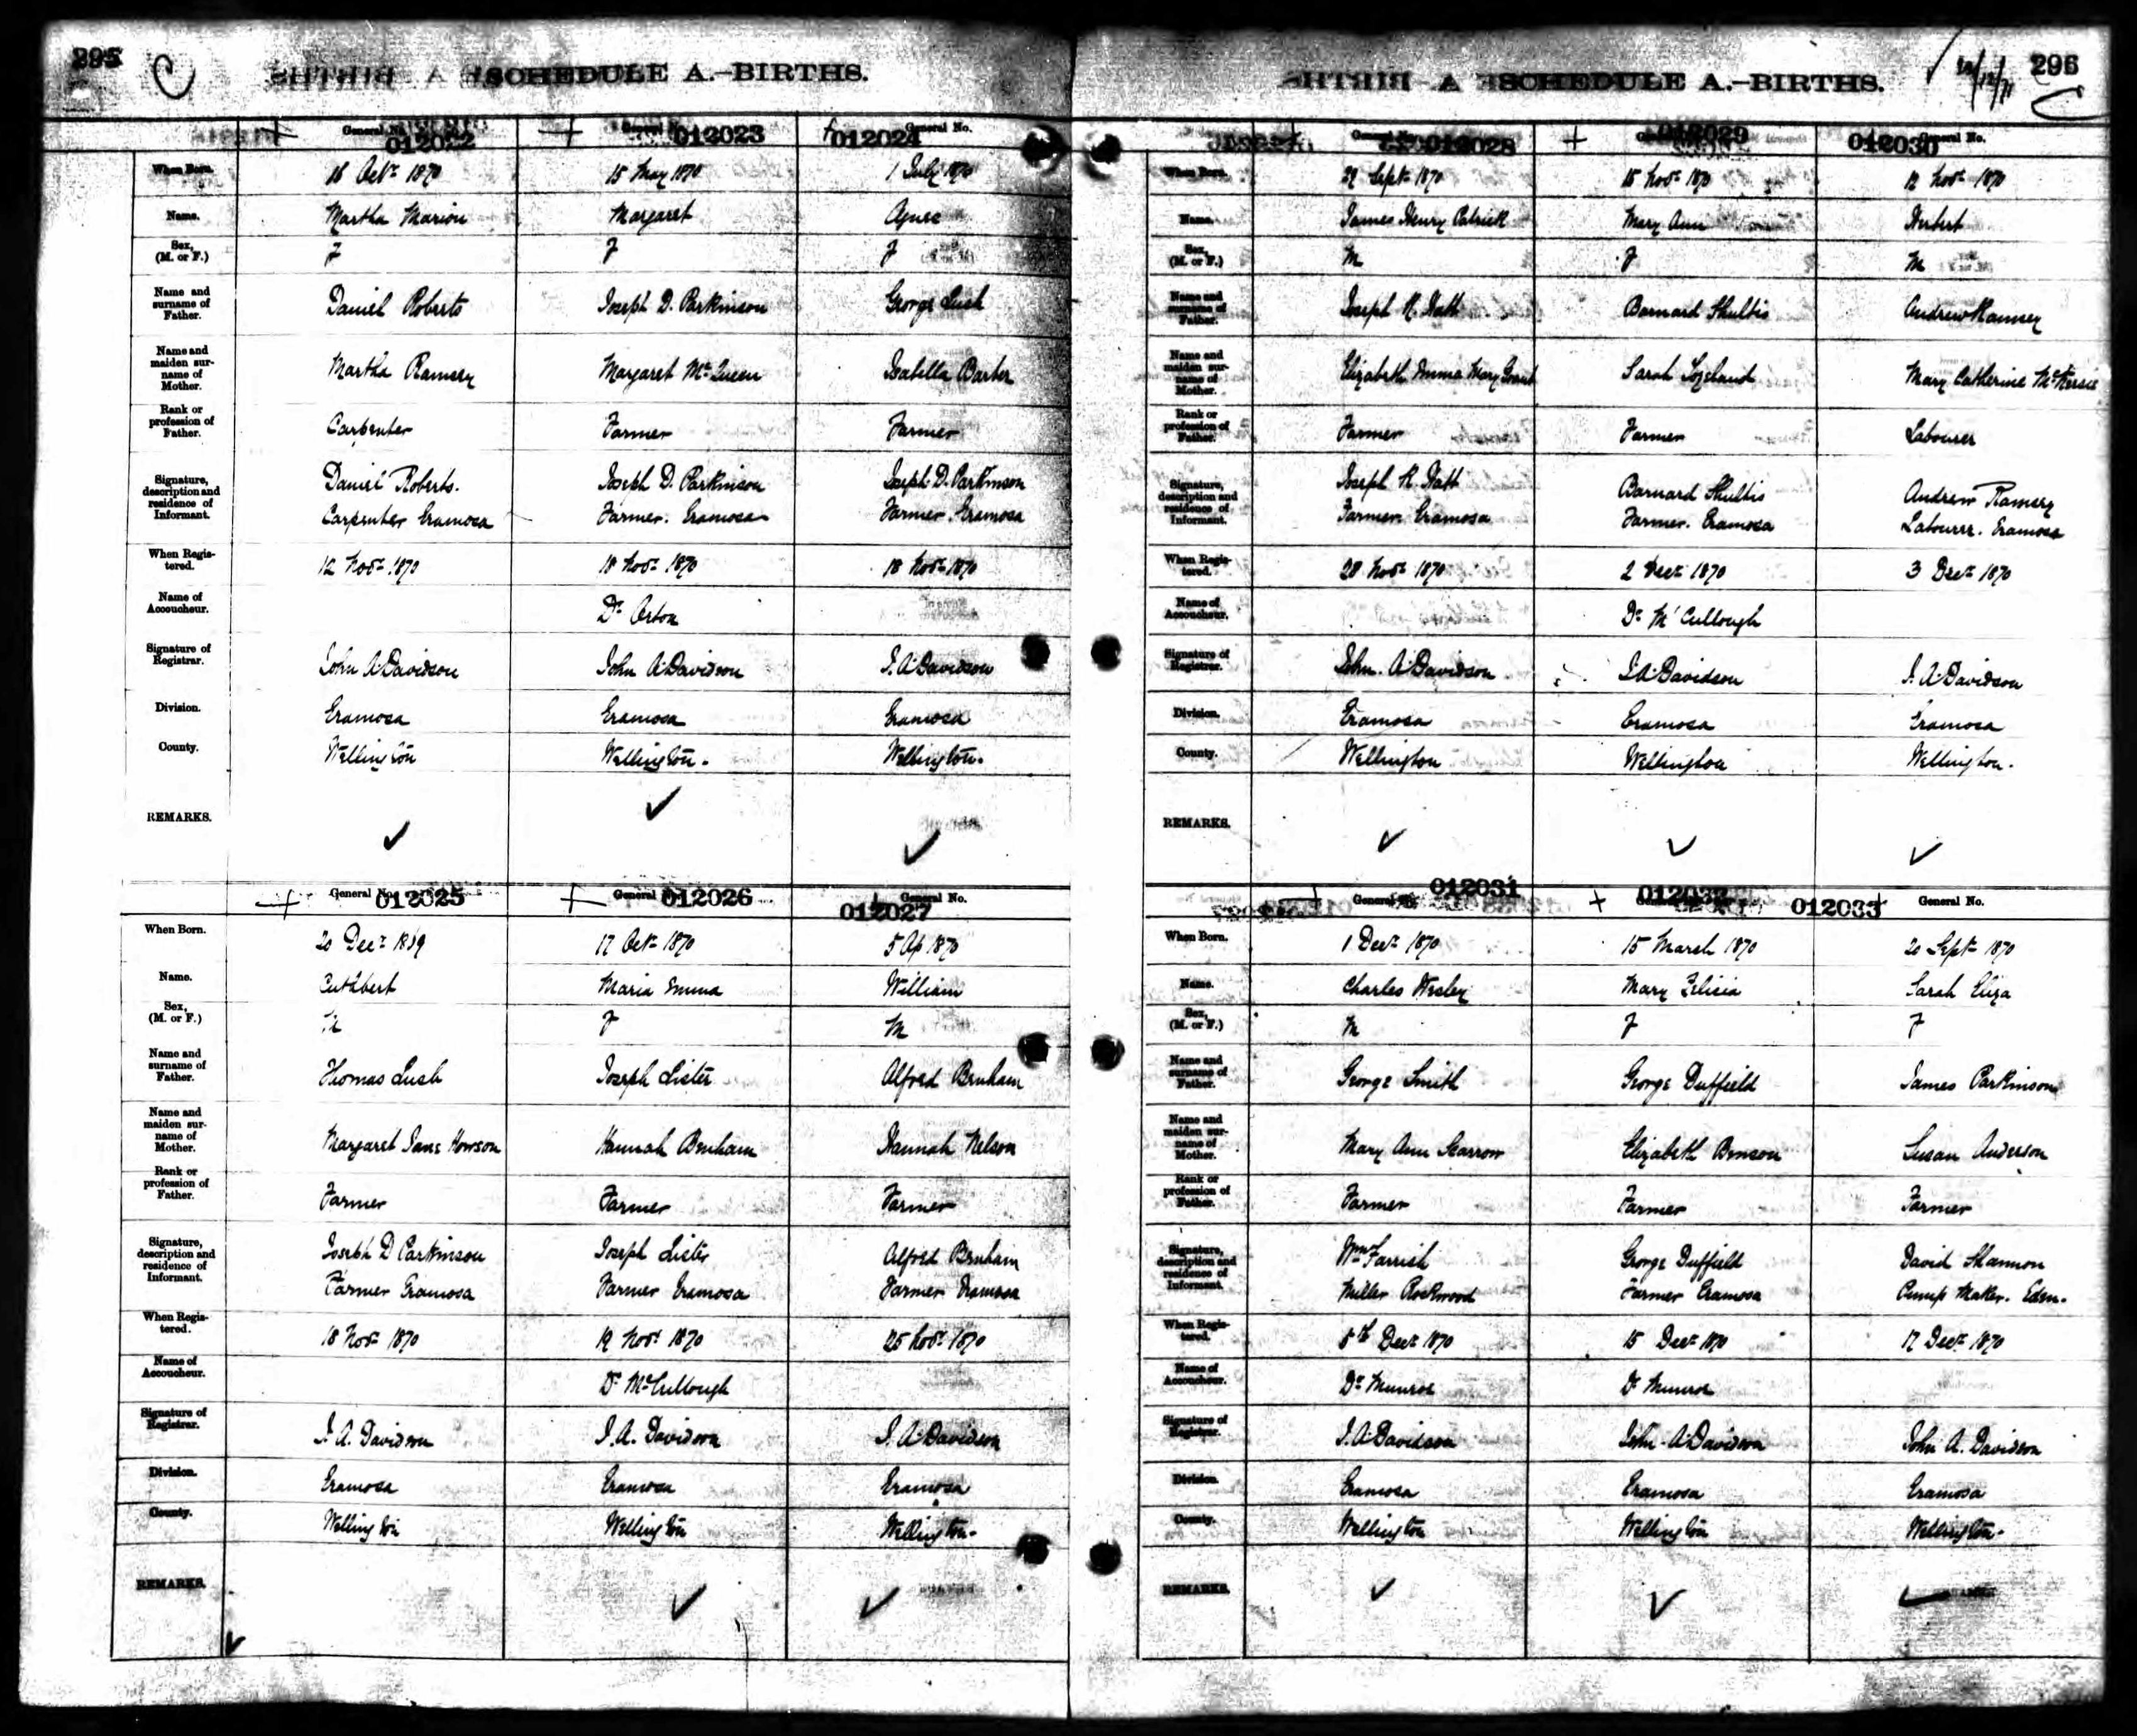 295
SCHEDULE A.—BIRTHS.
General No. 012022 General No. 012023 012024 General No.
When Born. 18 Octr 1870 15 May 1870 1 July 1870
Name. Martha Marion Margaret Agnes
Sex, (M. or F.) F F F
Name and surname of Father. Daniel Roberts Joseph D. Parkinson George Lush
Name and maiden surname of Mother. Martha Ramsey Margaret McQueen Isabella Barber
Rank or profession of Father. Carpenter Farmer Farmer
Signature, description and residence of Informant. Daniel Roberts. Joseph D. Parkinson Joseph D. Parkinson
Carpenter Eramosa Farmer. Eramosa Farmer. Eramosa
When Registered. 12 Novr 1870 18 Novr 1870 18 Novr 1870
Name of Accoucheur. Dr Orton
Signature of Registrar. John A Davidson John A Davidson J. A Davidson
Division. Eramosa Eramosa Eramosa
County. Wellington Wellington. Wellington.
REMARKS.
General No. 012025 General No. 012026 012027 General No.
When Born. 20 Decr 1869 17 Octr 1870 5 Ap 1870
Name. Cuthbert Maria Emma William
Sex, (M. or F.) M F M
Name and surname of Father. Thomas Lush Joseph Lister Alfred Benham
Name and maiden surname of Mother. Margaret Jane Howson Hannah Benham Hannah Nelson
Rank or profession of Father. Farmer Farmer Farmer
Signature, description and residence of Informant. Joseph D Parkinson Joseph Lister Alfred Benham
Farmer Eramosa Farmer Eramosa Farmer Eramosa
When Registered. 18 Novr 1870 19 Novr 1870 25 Novr 1870
Name of Accoucheur. Dr McCullough
Signature of Registrar. J. A. Davidson J. A. Davidson J. A Davidson
Division. Eramosa Eramosa Eramosa
County. Wellington Wellington Wellington.
REMARKS.
296
SCHEDULE A.—BIRTHS.
General No. 012028 012029 012030 General No.
When Born. 29 Sept 1870 15 Novr 1870 12 Novr 1870
Name. James Henry Patrick Mary Ann Herbert
Sex, (M. or F.) M F M
Name and surname of Father. Joseph H. Barnard Shultis Andrew Ramsey
Name and maiden surname of Mother. Elizabeth Emma Mary Sarah Mary Catherine
Rank or profession of Father. Farmer Farmer Labourer
Signature, description and residence of Informant. Joseph H. Barnard Shultis Andrew Ramsey
Farmer. Eramosa Farmer. Eramosa Labourer. Eramosa
When Registered. 28 Novr 1870 2 Decr 1870 3 Decr 1870
Name of Accoucheur. Dr McCullough
Signature of Registrar. John. A Davidson J A Davidson J. A Davidson
Division. Eramosa Eramosa Eramosa
County. Wellington Wellington Wellington.
REMARKS.
General No. 012031 012032 012033 General No.
When Born. 1 Decr 1870 15 March 1870 20 Sept 1870
Name. Charles Wesley Mary Felicia Sarah Eliza
Sex, (M. or F.) M F F
Name and surname of Father. George Smith George Duffield James Parkinson
Name and maiden surname of Mother. Mary Ann Scarrow Elizabeth Benson Susan Anderson
Rank or profession of Father. Farmer Farmer Farmer
Signature, description and residence of Informant. Wm Farrish George Duffield David Shannon
Miller Rockwood Farmer Eramosa Pump Maker. Eden.
When Registered. 5th Decr 1870 15 Decr 1870 17 Decr 1870
Name of Accoucheur. Dr Munroe Dr Munroe
Signature of Registrar. J. A Davidson John. A Davidson John A. Davidson
Division. Eramosa Eramosa Eramosa
County. Wellington Wellington Wellington.
REMARKS.